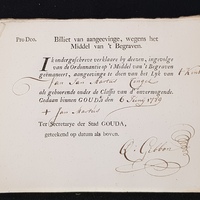 Pro Deo.
Billiet van aangeevinge, wegens het
Middel van 't Begraven.
Ik ondergeschreve verklaare by deezen, ingevolge
van de Ordonnantie op 't Middel van 't Begraven
geëmaneert, aangeevinge te doen van het Lyk van
Jan
als gehoorende onder de Classis van d'onvermogende.
Gedaan binnen GOUDA 6 Juny 1779
Jan
Ter Secretarye der Stad GOUDA,
geteekend op datum als boven.